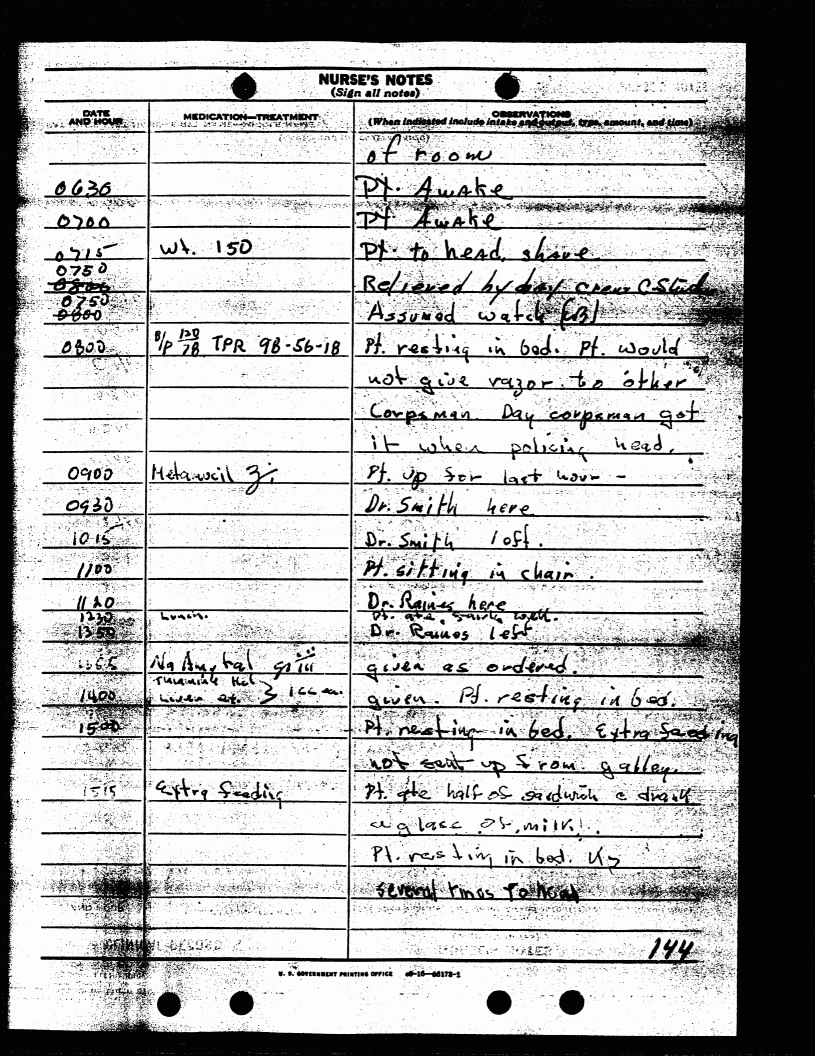 NURSE'S NOTES
(Sign all notes)
DATE AND HOUR MEDICATION—TREATMENT OBSERVATIONS
(When indicated include intake and output, type, amount, and time)
of room
0630 Pt. Awake
0700 Pt Awake
0715 Wt. 150 Pt. to head, shave
0750
0800 Relieved by day crew C.
0750
0800 Assumed watch
0800 B/P 120/78 TPR 98-56-18 Pt. resting in bed. Pt. would
not give razor to other
Corpsman. Day corpsman got
it when policing head.
0900 Metamucil Pt. up for last hour -
0930 Dr. Smith here
1015 Dr. Smith left.
1100 Pt. sitting in chair.
1120 Dr. Raines here
1230 Lunch. Pt. ate, fairly well.
1350 Dr. Raines left
Na Amytal gr iii given as ordered.
1400 Thiamine Hcl
Liver ext. } 1 cc ea. given. Pt. resting in bed.
1500 Pt. resting in bed. Extra feeding
not sent up from galley.
1515 Extra feeding Pt. ate half of sandwich c drank
a glass of milk.
Pt. resting in bed. Up
several times to head
144
U. S. GOVERNMENT PRINTING OFFICE